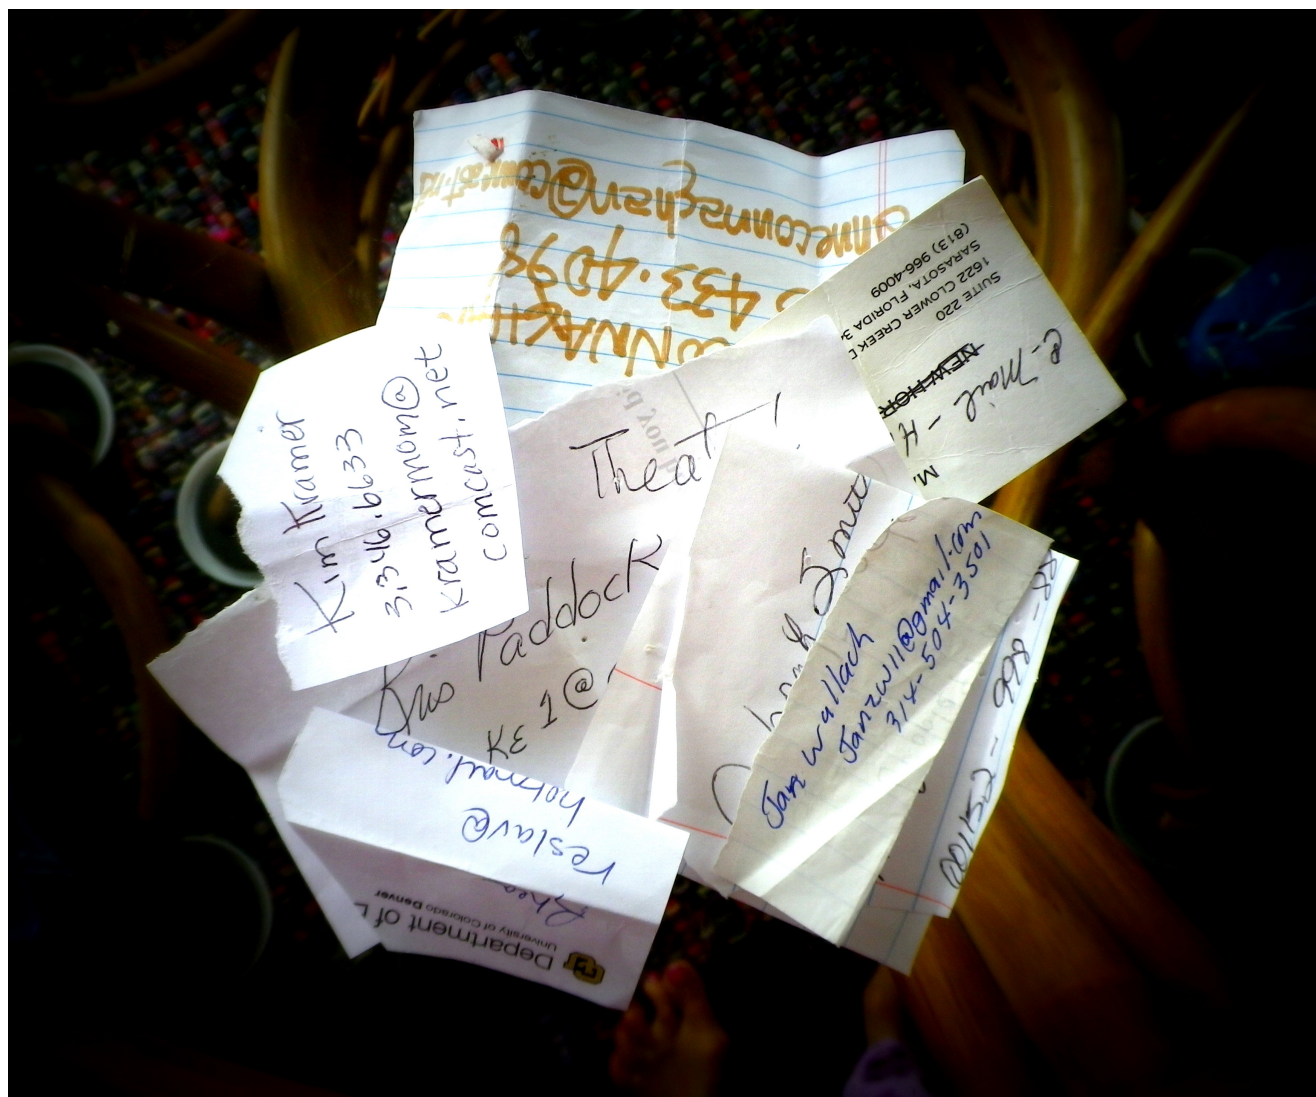 CONNAGH
433.4098
anneconnaghan@comcast.n
M.
e-mail - H
SUITE 220
1622 CLOWER CREEK D
SARASOTA, FLORIDA 3
(813) 966-4009
Kim Kramer
3.346.6633
kramermom@
comcast.net
Theat
Kris Paddock
KE 1@
Jan Wallach
Janzw11@gmail.com
314-504-3501
Rhea
reslav@
hotmail.com
Department of
University of Colorado Denver